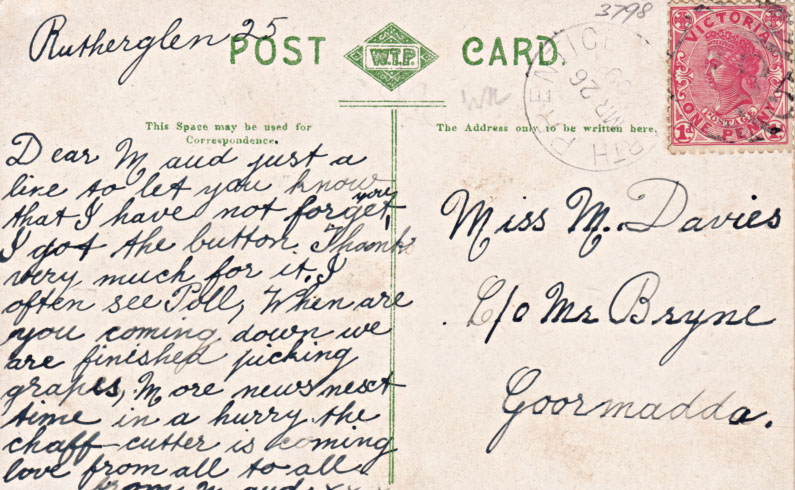 3798
Rutherglen 25
POST W.T.P. CARD
VICTORIA
POSTAGE
1d ONE PENNY 1d
RTH PRENTICE
MR 26
09
This Space may be used for
Correspondence.
The Address only to be written here.
Dear Maud just a
line to let you know
that I have not forget you,
I got the button. Thanks
very much for it. I
often see Poll, When are
you coming down we
are finished picking
grapes, More news next
time in a hurry the
chaff cutter is coming
love from all to all
from Maud xxx
Miss M. Davies
C/o Mr Bryne
Goormadda.